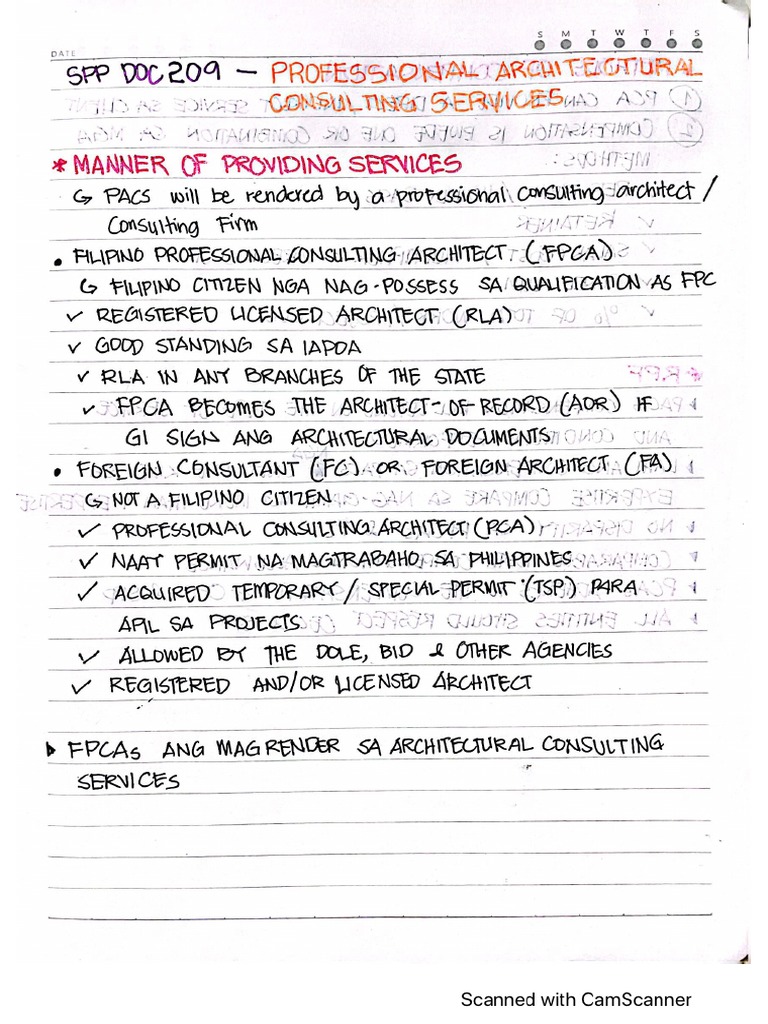 S M T W T F S
DATE
SPP DOC 209 – PROFESSIONAL ARCHITECTURAL
CONSULTING SERVICES
* MANNER OF PROVIDING SERVICES
↳ PACS will be rendered by a professional consulting architect /
Consulting Firm
• FILIPINO PROFESSIONAL CONSULTING ARCHITECT (FPCA)
↳ FILIPINO CITIZEN NGA NAG-POSSESS SA QUALIFICATION AS FPC
✓ REGISTERED LICENSED ARCHITECT (RLA)
✓ GOOD STANDING SA IAPOA
✓ RLA IN ANY BRANCHES OF THE STATE
✓ FPCA BECOMES THE ARCHITECT-OF-RECORD (AOR) IF
GI SIGN ANG ARCHITECTURAL DOCUMENTS
• FOREIGN CONSULTANT (FC) OR FOREIGN ARCHITECT (FA)
↳ NOT A FILIPINO CITIZEN
✓ PROFESSIONAL CONSULTING ARCHITECT (PCA)
✓ NAAY PERMIT NA MAGTRABAHO SA PHILIPPINES
✓ ACQUIRED TEMPORARY / SPECIAL PERMIT (TSP) PARA
APIL SA PROJECTS
✓ ALLOWED BY THE DOLE, BID & OTHER AGENCIES
✓ REGISTERED AND/OR LICENSED ARCHITECT
▸ FPCAs ANG MAGRENDER SA ARCHITECTURAL CONSULTING
SERVICES
Scanned with CamScanner